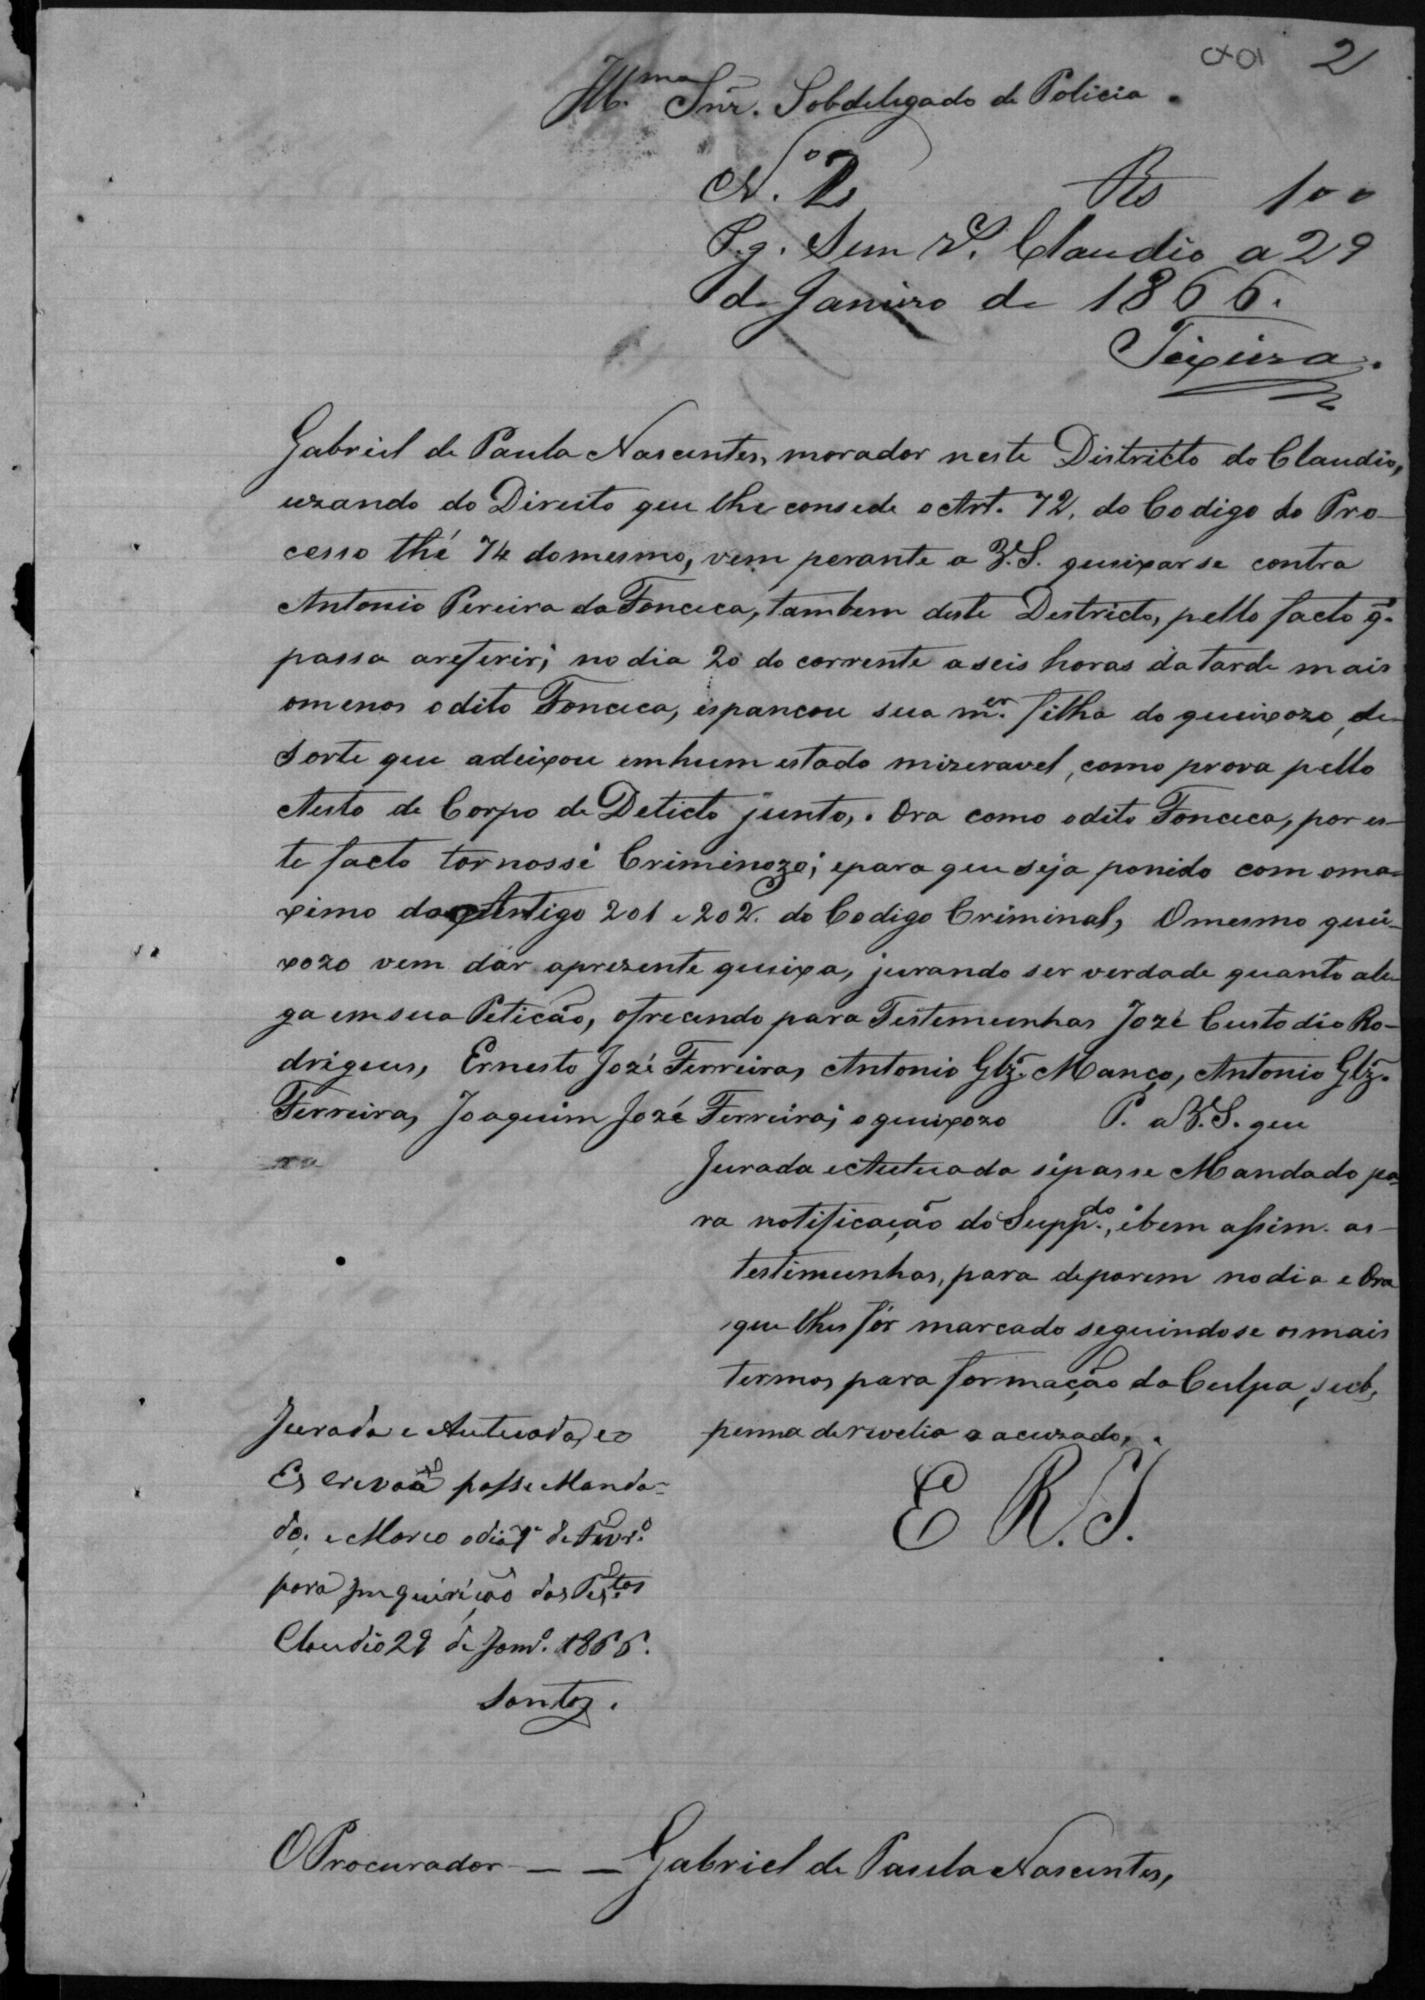 2
Illmo Snr. Sobdelegado de Policia.
N.º 2 Rs 100
Pg. Cem rs. Claudio a 29
de Janiro de 1866.
Teixeira.
Gabriel de Paula Nascentes, morador neste Districto do Claudio,
uzando do Direito que lhe consede o Art. 72, do Codigo do Pro-
cesso thé 74 do mesmo, vem perante a V.S. queixarse contra
Antonio Pereira da Fonceca, tambem deste Destricto, pello facto q.
passa areferir; no dia 20 do corrente a seis horas da tarde mais
omenos o dito Fonceca, espancou sua mer. filha do queixozo, de
sorte que adeixou em hum estado mizeravel, como prova pello
Auto de Corpo de Delicto junto,. Ora como odito Fonceca, por es-
te facto tornossé Criminozo; epara que seja ponido com oma-
ximo do Artigo 201 e 202. do Codigo Criminal, O mesmo quei-
xozo vem dár aprezente queixa, jurando ser verdade quanto ale-
ga em sua Peticão, ofrecendo para Testemunhas Jozé Custodio Ro-
drigeus, Ernesto Jozé Ferreira, Antonio Glz. Manço, Antonio Glz.
Ferreira, Joaquim Jozé Ferreira; o queixozo P. a V.S. que
Jurada e Autuada sépasse Mandado pa-
ra notificação do Suppdo., ébem assim as
testimunhas, para deporem no dia e Ora
que lhes fór marcado seguindose os mais
termos para formação da Culpa, sub,
penna de rivelia o acuzado,.
E R. J.
Jurada e Autuada, eo
Escrivaõ passe Manda-
do, e Marco o dia 1º de Fevrº
para Inquirição das Testas
Claudio 29 de Janrº. 1866.
Santos.
O Procurador — — Gabriel de Paula Nascentes,